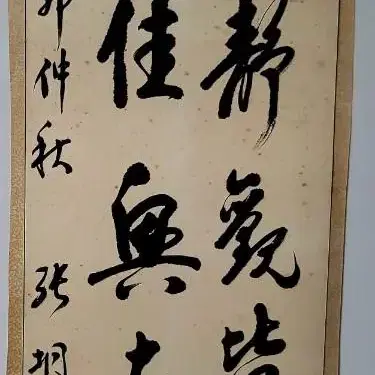 靜觀皆
佳興
卯仲秋 张